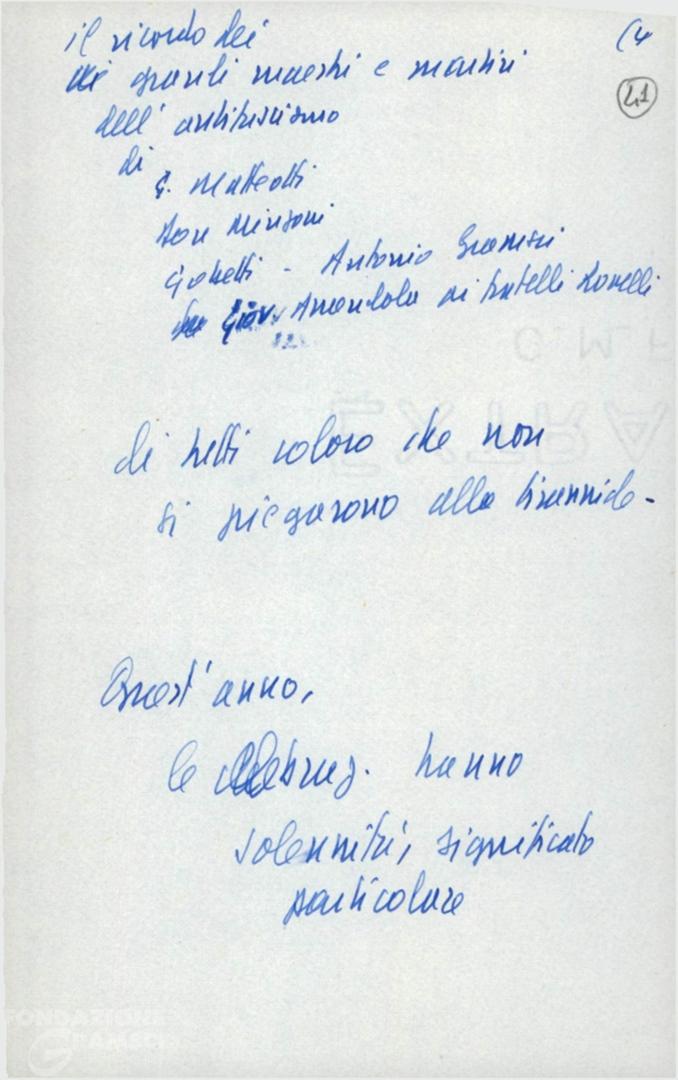 il ricordo dei (4
dei grandi maestri e martiri 41
dell'antifascismo
di
G. Matteotti
Don Minzoni
Gobetti - Antonio Gramsci
Giov. Amendola ai fratelli Rosselli
EXTRA
di tutti coloro che non
si piegarono alla tirannide -
Quest'anno,
le celebraz. hanno
solennità, significato
particolare
FONDAZIONE
GRAMSCI